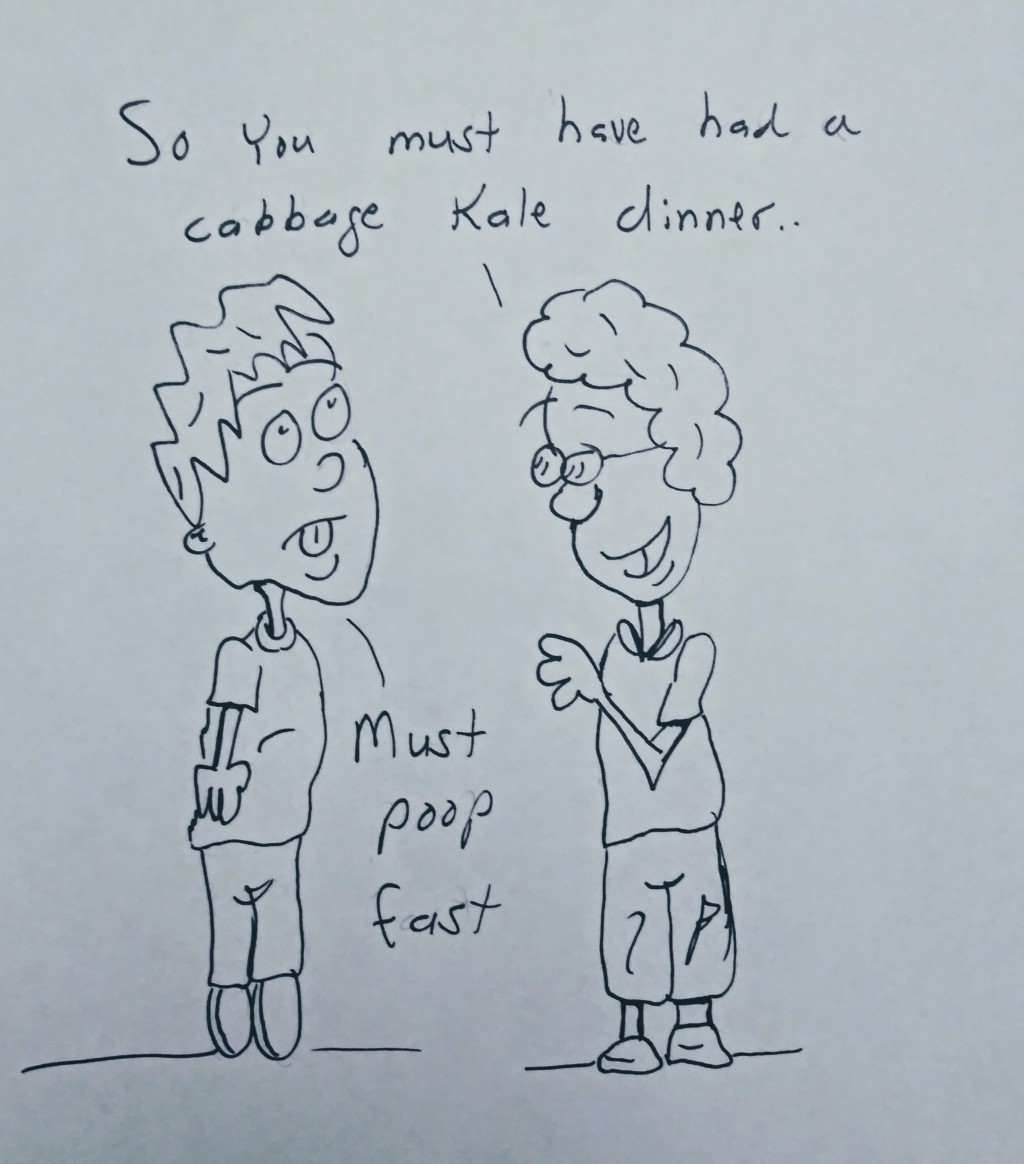 So You must have had a
cabbage Kale dinner..
Must
poop
fast